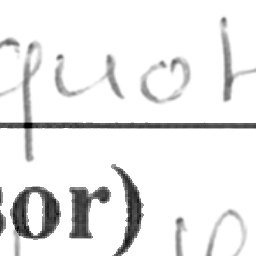 quot
sor)